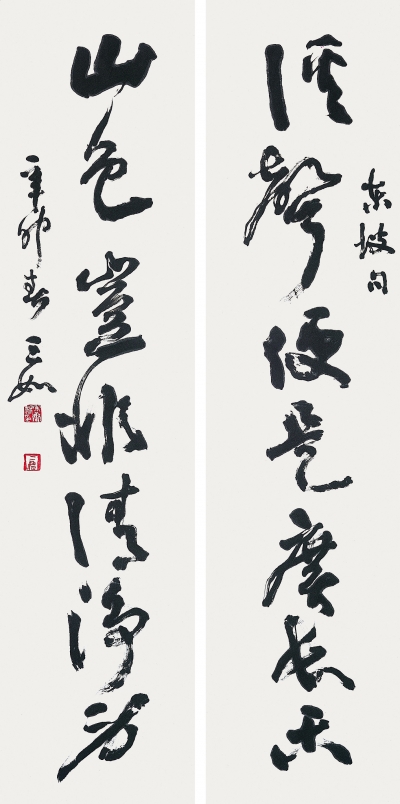 溪聲便是廣長舌
東坡句
山色豈非清淨身
辛卯春 三如